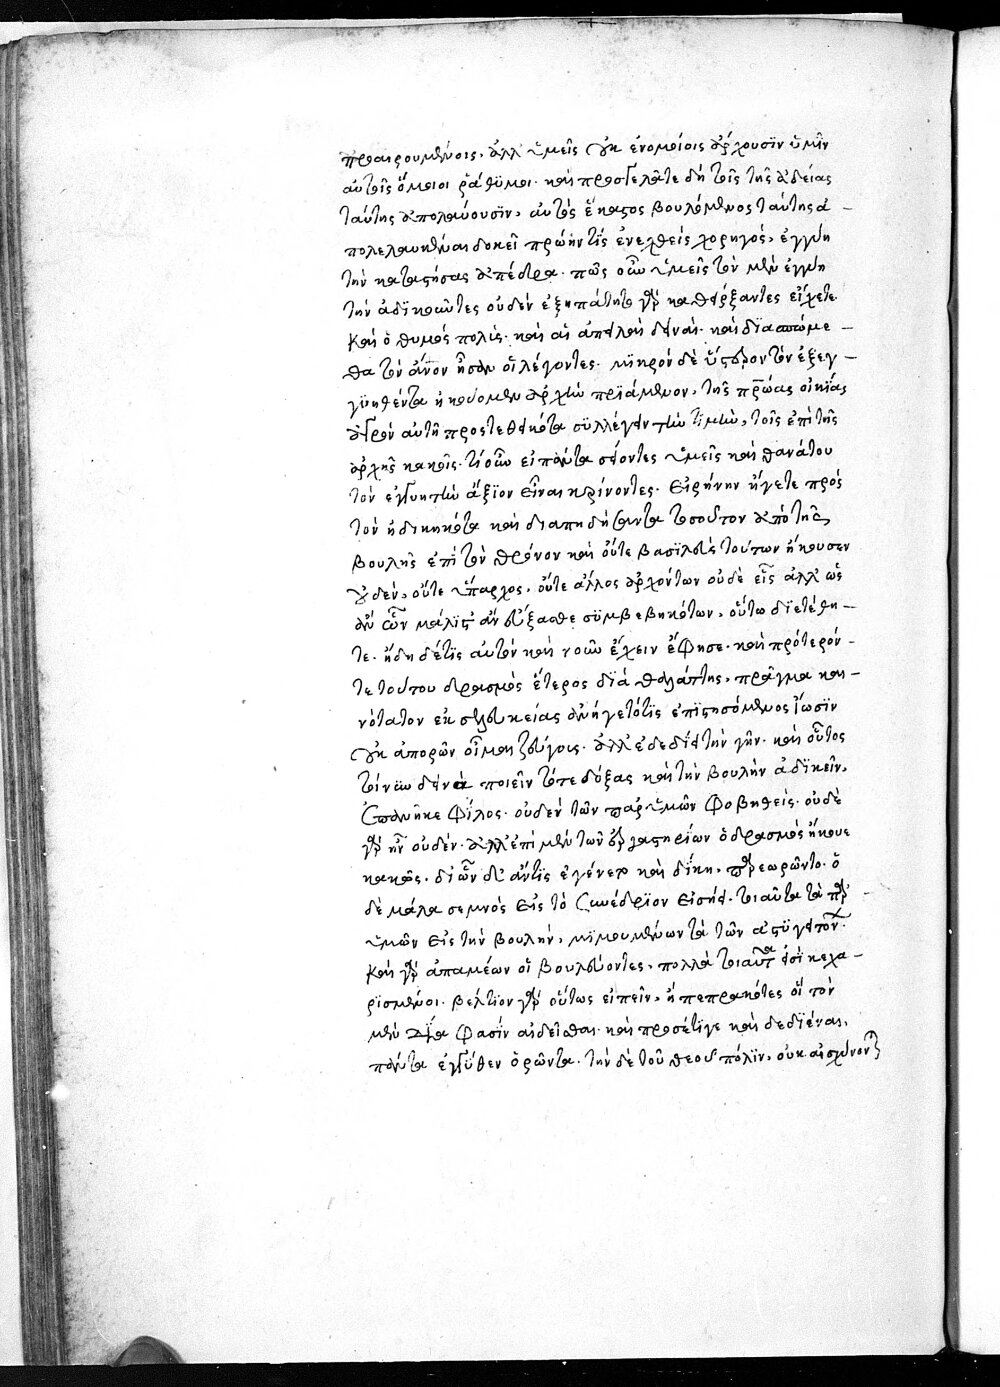 προαιρουμένοις. ἀλλ' ὑμεῖς οὐκ ἐν ὁμοίοις ἄρχουσϊν ὑμῖν
αὐτοῖς ὅμοιοι ῥάθυμοι. καὶ προσγελᾶτε δὴ τοῖς τῆς ἀδείας
ταύτης ἀπολαύουσϊν, αὐτὸς ἕκαστος βουλόμενος ταύτης ἀ-
πολελαυκέναι δοκεῖ πρώην τϊς ἐνεχθεὶς χορηγός, ἐγγυη
τὴν καταστήσας ἀπέδρα. πῶς οὖν ὑμεῖς τὸν μὲν ἐγγυη
τὴν ἀδϊκοῦντες οὐδὲν ἐξηπάτητο γὰρ καθείρξαντες εἴχετε
καὶ ὁ θυμὸς πολύς. καὶ αἱ ἀπειλαὶ δειναί. καὶ
θα τὸν ἦσαν οἱ λέγοντες. μϊκρὸν δὲ ὕστερον τὸν ἐξεγ-
γυηθέντα ἠκούομεν ἀρχὴν πρϊάμενον, τῆς πρώας οἰκίας
ἀγρὸν αὐτῇ προστεθεικότα συλλέγειν τὴν τϊμὴν, τοῖς ἐπὶ τῆς
ἀρχῆς κακοῖς. τί οὖν οἱ πάντα σείοντες ὑμεῖς καὶ θανάτου
τὸν ἐγγυητὴν ἄξϊον εἶναι κρίνοντες. εἰρήνην ἤγετε πρὸς
τὸν ἠδικηκότα καὶ διαπηδήσαντα τοσοῦτον ἀπὸ τῆς
βουλῆς ἐπὶ τὸν θρόνον καὶ οὔτε βασϊλεὺς τούτων ἤκουσεν
οὐδὲν, οὔτε ὕπαρχος, οὔτε ἄλλος ἀρχόντων οὐδὲ εἷς ἀλλ' ὡς
ἂν ὧν μάλϊστ' ἂν εὔξασθε συμβεβηκότων, οὕτω δϊετέθη-
τε. ἤδη δέ τϊς αὐτὸν καὶ νοῦν ἔχειν ἔφησε. καὶ πρότερόν-
τε τούτου δρασμὸς ἕτερος δϊὰ θαλάττης, πρᾶγμα και-
νότατον ἐκ σελευκείας ἀνήγετό τϊς ἐπϊστησόμενος ἴωσϊν
οὐκ ἀπορῶν οἶμαι ζεύγους. ἀλλ' ἐδεδίει τὴν γῆν. καὶ οὗτος
τοίνυν δεινὰ ποιεῖν τότε δόξας καὶ τὴν βουλὴν ἀδϊκεῖν,
ἐπανῆκε φίλος. οὐδὲν τῶν παρ' ὑμῶν φοβηθεὶς. οὐδὲ
γὰρ ἦν οὐδέν. ἀλλ' ἐπὶ μὲν τῶν ἐργαστηρίων ὁ δρασμὸς ἤκουε
κακῶς. δι' ὧν δ' ἄν τϊς ἐγένετο καὶ δίκη, παρεωρῶντο. ὁ
δὲ μάλα σεμνὸς εἰς τὸ συνέδρϊον εἰσῄει. τοιαῦτα τὰ παρ'
ὑμῶν εἰς τὴν βουλὴν, μϊμουμένων τὰ τῶν ἀστυγειτόνων.
καὶ γὰρ ἀπαμέων οἱ βουλεύοντες, πολλὰ τοιαῦτά εἰσὶ κεχα-
ρϊσμένοι. βέλτϊον γὰρ οὕτως εἰπεῖν, ἢ πεπρακότες οἳ τὸν
μὲν Δία φασὶν αἰδεῖσθαι. καὶ προσέτϊγε καὶ δεδϊέναι,
πάντα ἐγγύθεν ὁρῶντα. τὴν δὲ τοῦ θεοῦ πόλϊν, οὐκ αἰσχύνονται